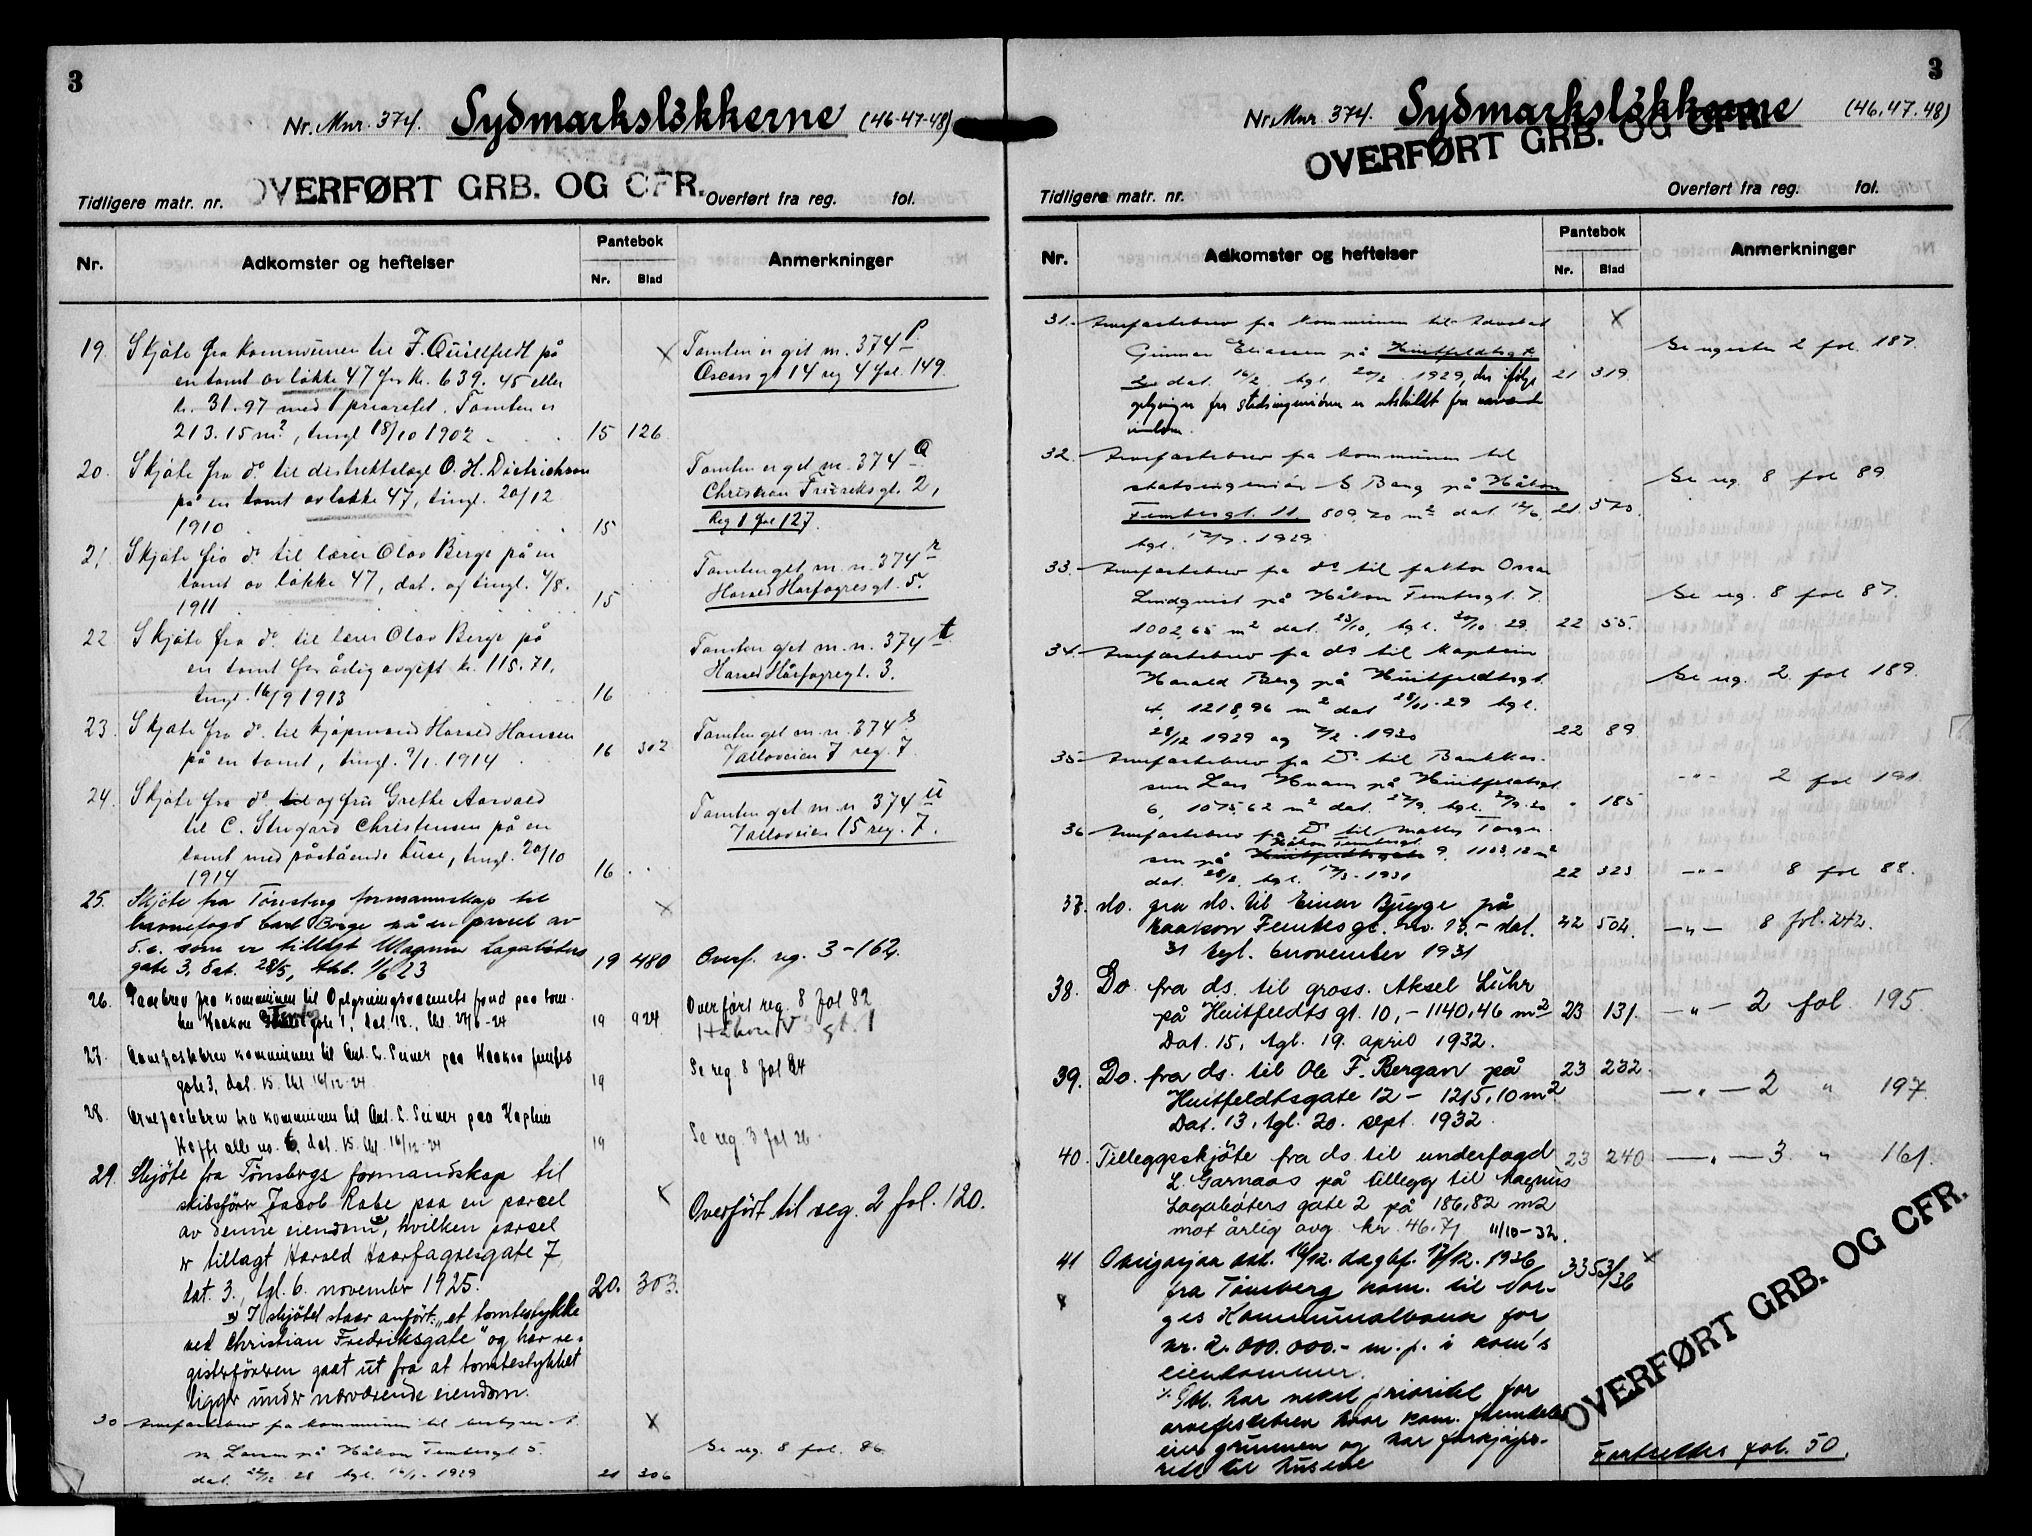 3
Nr. Mnr. 374. Sydmarksløkkerne (46-47-48)
OVERFØRT GRB. OG CFR.
Tidligere matr. nr.
Overført fra reg. fol.
Nr.
Adkomster og heftelser
Pantebok
Nr.
Blad
Anmerkninger
19. Skjøte fra Kommunen til F. Quillfeldt på
en tomt av løkke 47 for kr. 639.45 eller
kr. 31.97 med 1 prioritet. Tomten er
213.15 m², tingl 18/10 1902 15 126
Tomten er git m. 374 p
Oscars gt 14 reg 4 fol. 149.
20. Skjøte fra do til distriktslæge O. H. Dietrichson
på en tomt av løkke 47, tingl. 20/12
1910 15
Tomten er get m. 374 q
Christian Fredriksgt. 2,
Reg 1 fol 127.
21. Skjøte fra do til lærer Olav Berge på en
tomt av løkke 47, dat. og tingl. 4/8.
1911 15
Tomten get m. n. 374 r
Harald Hårfagresgt. 5.
22 Skjøte fra do. til lærer Olav Berge på
en tomt for årlig avgift kr. 115.71,
tingl. 16/9 1913 16
Tomten get m. n. 374 t
Harald Hårfagregt. 3.
23. Skjøte fra do. til kjøpmand Harald Hansen
på en tomt, tingl. 9/1. 1914 16 302
Tomten get m. n. 374 s
Valløveien 7 reg. 7.
24. Skjøte fra do. til og fru Grethe Aarvold
til C. Stugard Christensen på en
tomt med påstående huse, tingl. 20/10
1914 16
Tomten get m. n 374 u
Valløveien 15 reg. 7.
25. Skjøte fra Tønsberg formannskap til
havnefogd Carl Borge på en parcel av
d.e. som er tillagt Magnus Lagabøters
gate 3. Dat. 28/5, thl. 1/6 23 19 480
Overf. reg. 3-162.
26. kommunen til Oplysningsvæsenets fond paa tom-
ten Haakon gate 1, dat. 18., thl. 24/6-24 19 924
Overført reg. 8 fol 82
27. Arvefestebrev kommunen til Ant. L. Seiner paa Haakon Jemtes
gate 3, dat. 15. thl 16/12-24 19
Se reg. 8 fol 84
28. Arvefestebrev fra kommunen til Ant. L. Seiner paa Kaptein
alle no. 6, dat. 15. thl. 16/12-24 19
Se reg 3 fol 26.
29. Skjøte fra Tønsbergs formandskap til
skibsfører Jacob Rabe paa en parcel
av denne eiendom, hvilken parcel
er tillagt Harald Haarfagresgate 7
dat. 3., tgl. 6. november 1925. 20. 303.
Overført til reg. 2 fol. 120.
x) I skjøtet staar anført: "et tomtestykke
ved Christian Fredriksgate" og har re-
gisterføreren gaat ut fra at tomtestykket
ligger under nærværende eiendom.
30 Arvefestebrev fra kommunen til
Larsen på Håkon Jemtesgt 5.
dat. 22/12. 28 tgl. 1929 21 306
Se reg. 8 fol. 86
3
Nr. Mnr 374. Sydmarksløkkerne (46,47.48)
OVERFØRT GRB. OG CFR.
Tidligere matr. nr.
Overført fra reg. fol.
Nr.
Adkomster og heftelser
Pantebok
Nr.
Blad
Anmerkninger
31. Arvefestebrev fra kommunen til Advokat
Gunnar Eliassen på Huitfeldtsgt
2 dat. 16/2. tgl. 20/2. 1929, der ifølge 21 319.
oplysninger fra stadsingeniøren er utskildt fra nærværende
eiendom.
Se register 2 fol. 187.
32. Arvefestebrev fra kommunen til
stadsingeniør S Bang på Håkon
Jemtesgt. 11. 809,70 m² dat. 12/6. 21 570.
tgl. 1929
Se reg. 8 fol 89
33. Arvefestebrev fra ds til faktor Oscar
Lindqvist på Håkon Jemtesgt. 7.
1002,65 m² dat. 23/10, tgl. 30/10. 29. 22 55.
Se reg. 8 fol 87.
34. Arvefestebrev fra ds til kaptein
Harald Berg på Huitfeldtsgt.
4. 1218,96 m² dat 28/11.29 tgl.
28/12 1929 og 1930 22 89.
Se reg. 2 fol 189.
35- Arvefestebrev fra Do til Bankkas-
serer Lars Kvam på Huitfeldtsgt
6, 1075,62 m² dat. 27/9. tgl. 29/9.30 " 185
-"- 2 fol 191.
36 Arvefestebrev fra Do til Torger-
sen på Huitfeldtsgate Håkon Jemtesgt. 9. 1103,12 m²
dat. 28/2. tgl. 1931 22 323
-"- 8 fol 88.
37. do. fra ds. til Einar Bugge på
Haakon Jemtesgt. no. 13. - dat. 22 504.
31 tgl. 6 november 1931
-"- 8 fol. 242.
38. Do fra ds. til gross. Aksel Lühr
på Huitfeldts gt. 10, - 1140,46 m² 23 131.
Dat. 15, tgl. 19. april 1932.
-"- 2 fol 195.
39. Do. fra ds. til Ole F. Bergan på 23 232.
Huitfeldtsgate 12 - 1215,10 m²
Dat. 13, tgl. 20. sept. 1932.
-"- 2 " 197.
40. Tilleggsskjøte fra ds. til underfogd 23 240
L. Garnaas på tillegg til Magnus
Lagabøters gate 2 på 186,82 m2
mot årlig avg. kr. 46.71 11/10-32.
-"- 3 " 161.
41 Obligasjon dat. 16/12. dagbf. 17/12. 1936 3353/36
fra Tønsberg kom. til Nor-
ges Kommunalbank for
kr. 2.000.000.- m. p. i kom's
eiendommer.
Obl. har nekst prioritet for
arvefestebrev hvor kom. fremdeles
eier grunnen og har forkjøps-
rett til husene
OVERFØRT GRB. OG CFR.
Fortsettes fol. 50.